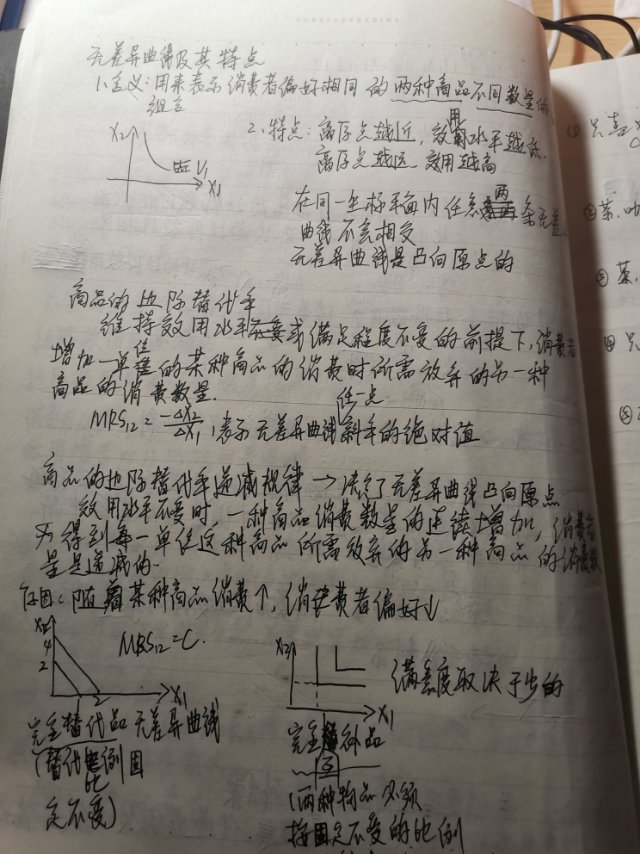 无差异曲线及其特点
1.定义:用来表示消费者偏好相同的两种商品不同数量的
组合
X2
U1
X1
2.特点:离原点越近,效用水平越低.
离原点越远 效用越高
在同一坐标平面内任意两条无差异
曲线不会相交
无差异曲线是凸向原点的
商品的边际替代率
维持效用水平不变或满足程度不变的前提下,消费者
增加一单位的某种商品的消费时所需放弃的另一种
商品的消费数量.
MRS12 = -ΔX2/ΔX1,表示无差异曲线任一点斜率的绝对值
商品的边际替代率递减规律→决定了无差异曲线凸向原点
效用水平不变时,一种商品消费数量的连续增加,消费者
为得到每一单位这种商品所需放弃的另一种商品的消费数
量是递减的.
原因:随着某种商品消费↑,消费者偏好↓
X2
4
2
MRS12=C.
2
X1
完全替代品 无差异曲线
(替代比例固
定不变)
X2
X1
满意度取决于少的
完全 品
(两种物品必须
按固定不变的比例
① 只喜
② 茶.
③ 茶.
④ 只
⑤